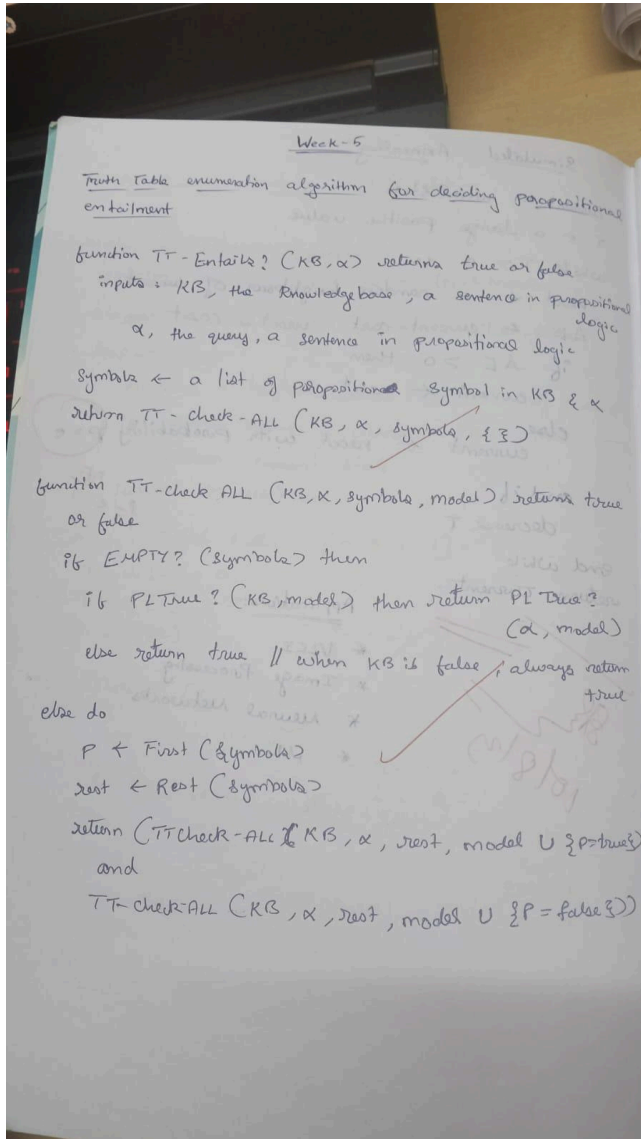 Week-5
Truth Table enumeration algorithm for deciding propositional
entailment
function TT-Entails? (KB, α) returns true or false
inputs: KB, the Knowledgebase, a sentence in propositional
logic
α, the query, a sentence in propositional logic
Symbols ← a list of propositional symbol in KB & α
return TT-check-ALL (KB, α, symbols, { })
function TT-check ALL (KB, α, symbols, model) returns true
or false
if EMPTY? (symbols) then
if PLTrue? (KB, model) then return PL True?
(α, model)
else return true // when KB is false, always return
true
else do
P ← First (Symbols)
rest ← Rest (symbols)
return (TTcheck-ALL ( KB, α, rest, model ∪ {P=true})
and
TT-check-ALL (KB, α, rest, model ∪ {P = false}))